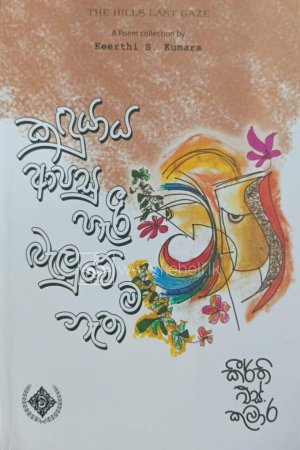 THE HILLS LAST GAZE
A Poem collection by
Keerthi S. Kumara
කඳුයාය
ආපසු
හැරී
බැලුවේ මි
නැත
කීර්ති
එස්
කුමාර